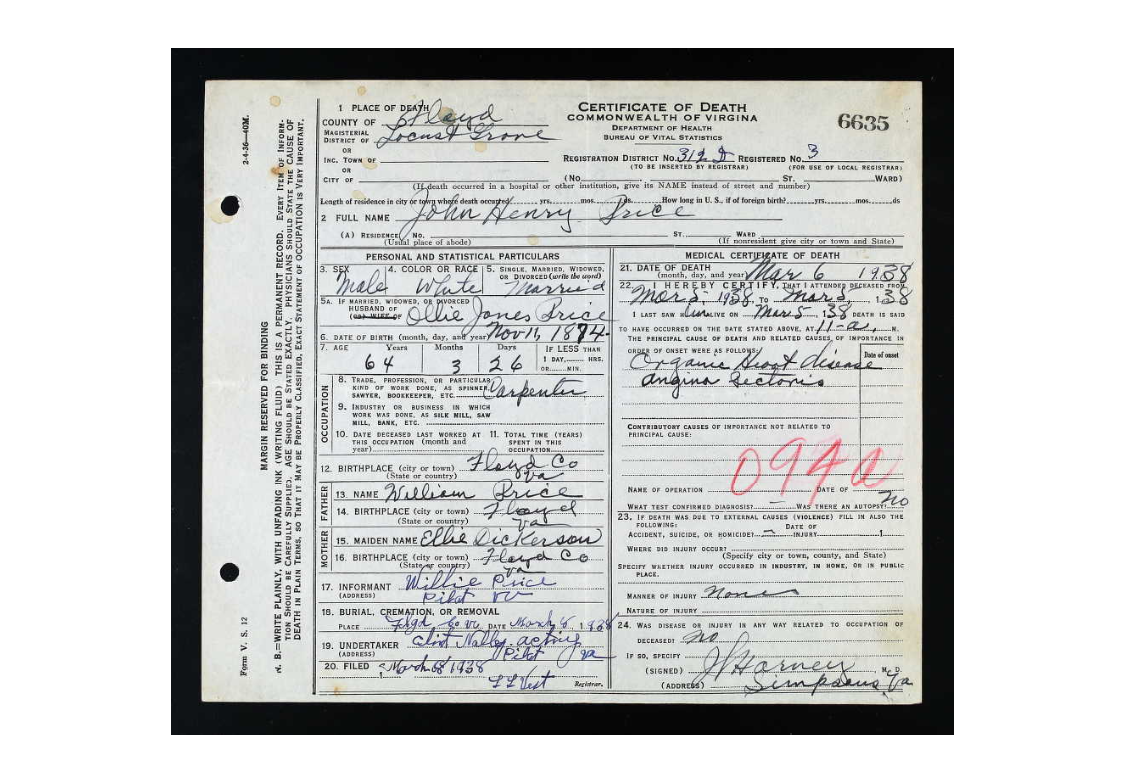 1 PLACE OF DEATH
COUNTY OF Floyd
MAGISTERIAL DISTRICT OF Locust Grove
OR
INC. TOWN OF
OR
CITY OF
CERTIFICATE OF DEATH
COMMONWEALTH OF VIRGINIA
DEPARTMENT OF HEALTH
BUREAU OF VITAL STATISTICS
6635
REGISTRATION DISTRICT No. 312 D REGISTERED No. 3
(TO BE INSERTED BY REGISTRAR) (FOR USE OF LOCAL REGISTRAR)
(No. ST. WARD)
(If death occurred in a hospital or other institution, give its NAME instead of street and number)
Length of residence in city or town where death occurred yrs. mos. ds. How long in U. S., if of foreign birth? yrs. mos. ds
2 FULL NAME John Henry Price
(A) RESIDENCE No. ST. WARD
(Usual place of abode) (If nonresident give city or town and State)
PERSONAL AND STATISTICAL PARTICULARS
3. SEX Male
4. COLOR OR RACE White
5. SINGLE, MARRIED, WIDOWED, OR DIVORCED (write the word) Married
5A. IF MARRIED, WIDOWED, OR DIVORCED
HUSBAND OF
(OR) WIFE OF Ollie Jones Price
6. DATE OF BIRTH (month, day, and year) Nov 11, 1874
7. AGE Years Months Days IF LESS THAN
64 3 26 1 DAY, HRS.
OR MIN.
OCCUPATION
8. TRADE, PROFESSION, OR PARTICULAR
KIND OF WORK DONE, AS SPINNER,
SAWYER, BOOKKEEPER, ETC. Carpenter
9. INDUSTRY OR BUSINESS IN WHICH
WORK WAS DONE, AS SILK MILL, SAW
MILL, BANK, ETC.
10. DATE DECEASED LAST WORKED AT THIS OCCUPATION (month and year)
11. TOTAL TIME (YEARS) SPENT IN THIS OCCUPATION
12. BIRTHPLACE (city or town) Floyd Co
(State or country) Va
FATHER
13. NAME William Price
14. BIRTHPLACE (city or town) Floyd
(State or country) Va
MOTHER
15. MAIDEN NAME Ellie Dickerson
16. BIRTHPLACE (city or town) Floyd Co
(State or country) Va
17. INFORMANT Willie Price
(ADDRESS) Pilot Va
18. BURIAL, CREMATION, OR REMOVAL
PLACE Floyd Co Va DATE March 8, 1938
19. UNDERTAKER Clint Nalley - acting
(ADDRESS) Pilot Va
20. FILED March 8 1938
L L Vest Registrar.
MEDICAL CERTIFICATE OF DEATH
21. DATE OF DEATH
(month, day, and year) Mar 6 1938
22. I HEREBY CERTIFY, THAT I ATTENDED DECEASED FROM
Mar 5, 1938, TO Mar 5, 138
I LAST SAW H im ALIVE ON Mar 5, 138 DEATH IS SAID
TO HAVE OCCURRED ON THE DATE STATED ABOVE, AT 11-a, M.
THE PRINCIPAL CAUSE OF DEATH AND RELATED CAUSES OF IMPORTANCE IN
ORDER OF ONSET WERE AS FOLLOWS: Date of onset
Organic Heart disease
Angina Pectoris
CONTRIBUTORY CAUSES OF IMPORTANCE NOT RELATED TO
PRINCIPAL CAUSE:
094a
NAME OF OPERATION DATE OF
WHAT TEST CONFIRMED DIAGNOSIS? – WAS THERE AN AUTOPSY? No
23. IF DEATH WAS DUE TO EXTERNAL CAUSES (VIOLENCE) FILL IN ALSO THE
FOLLOWING:
ACCIDENT, SUICIDE, OR HOMICIDE? – DATE OF INJURY 1
WHERE DID INJURY OCCUR?
(Specify city or town, county, and State)
SPECIFY WHETHER INJURY OCCURRED IN INDUSTRY, IN HOME, OR IN PUBLIC
PLACE.
MANNER OF INJURY None
NATURE OF INJURY
24. WAS DISEASE OR INJURY IN ANY WAY RELATED TO OCCUPATION OF
DECEASED? No
IF SO, SPECIFY
(SIGNED) M. D.
(ADDRESS) Simpsons, Va
2-4-36—40M.
MARGIN RESERVED FOR BINDING
N. B.—WRITE PLAINLY, WITH UNFADING INK (WRITING FLUID) THIS IS A PERMANENT RECORD. EVERY ITEM OF INFORM-
TION SHOULD BE CAREFULLY SUPPLIED. AGE SHOULD BE STATED EXACTLY. PHYSICIANS SHOULD STATE THE CAUSE OF
DEATH IN PLAIN TERMS, SO THAT IT MAY BE PROPERLY CLASSIFIED. EXACT STATEMENT OF OCCUPATION IS VERY IMPORTANT.
Form V. S. 12